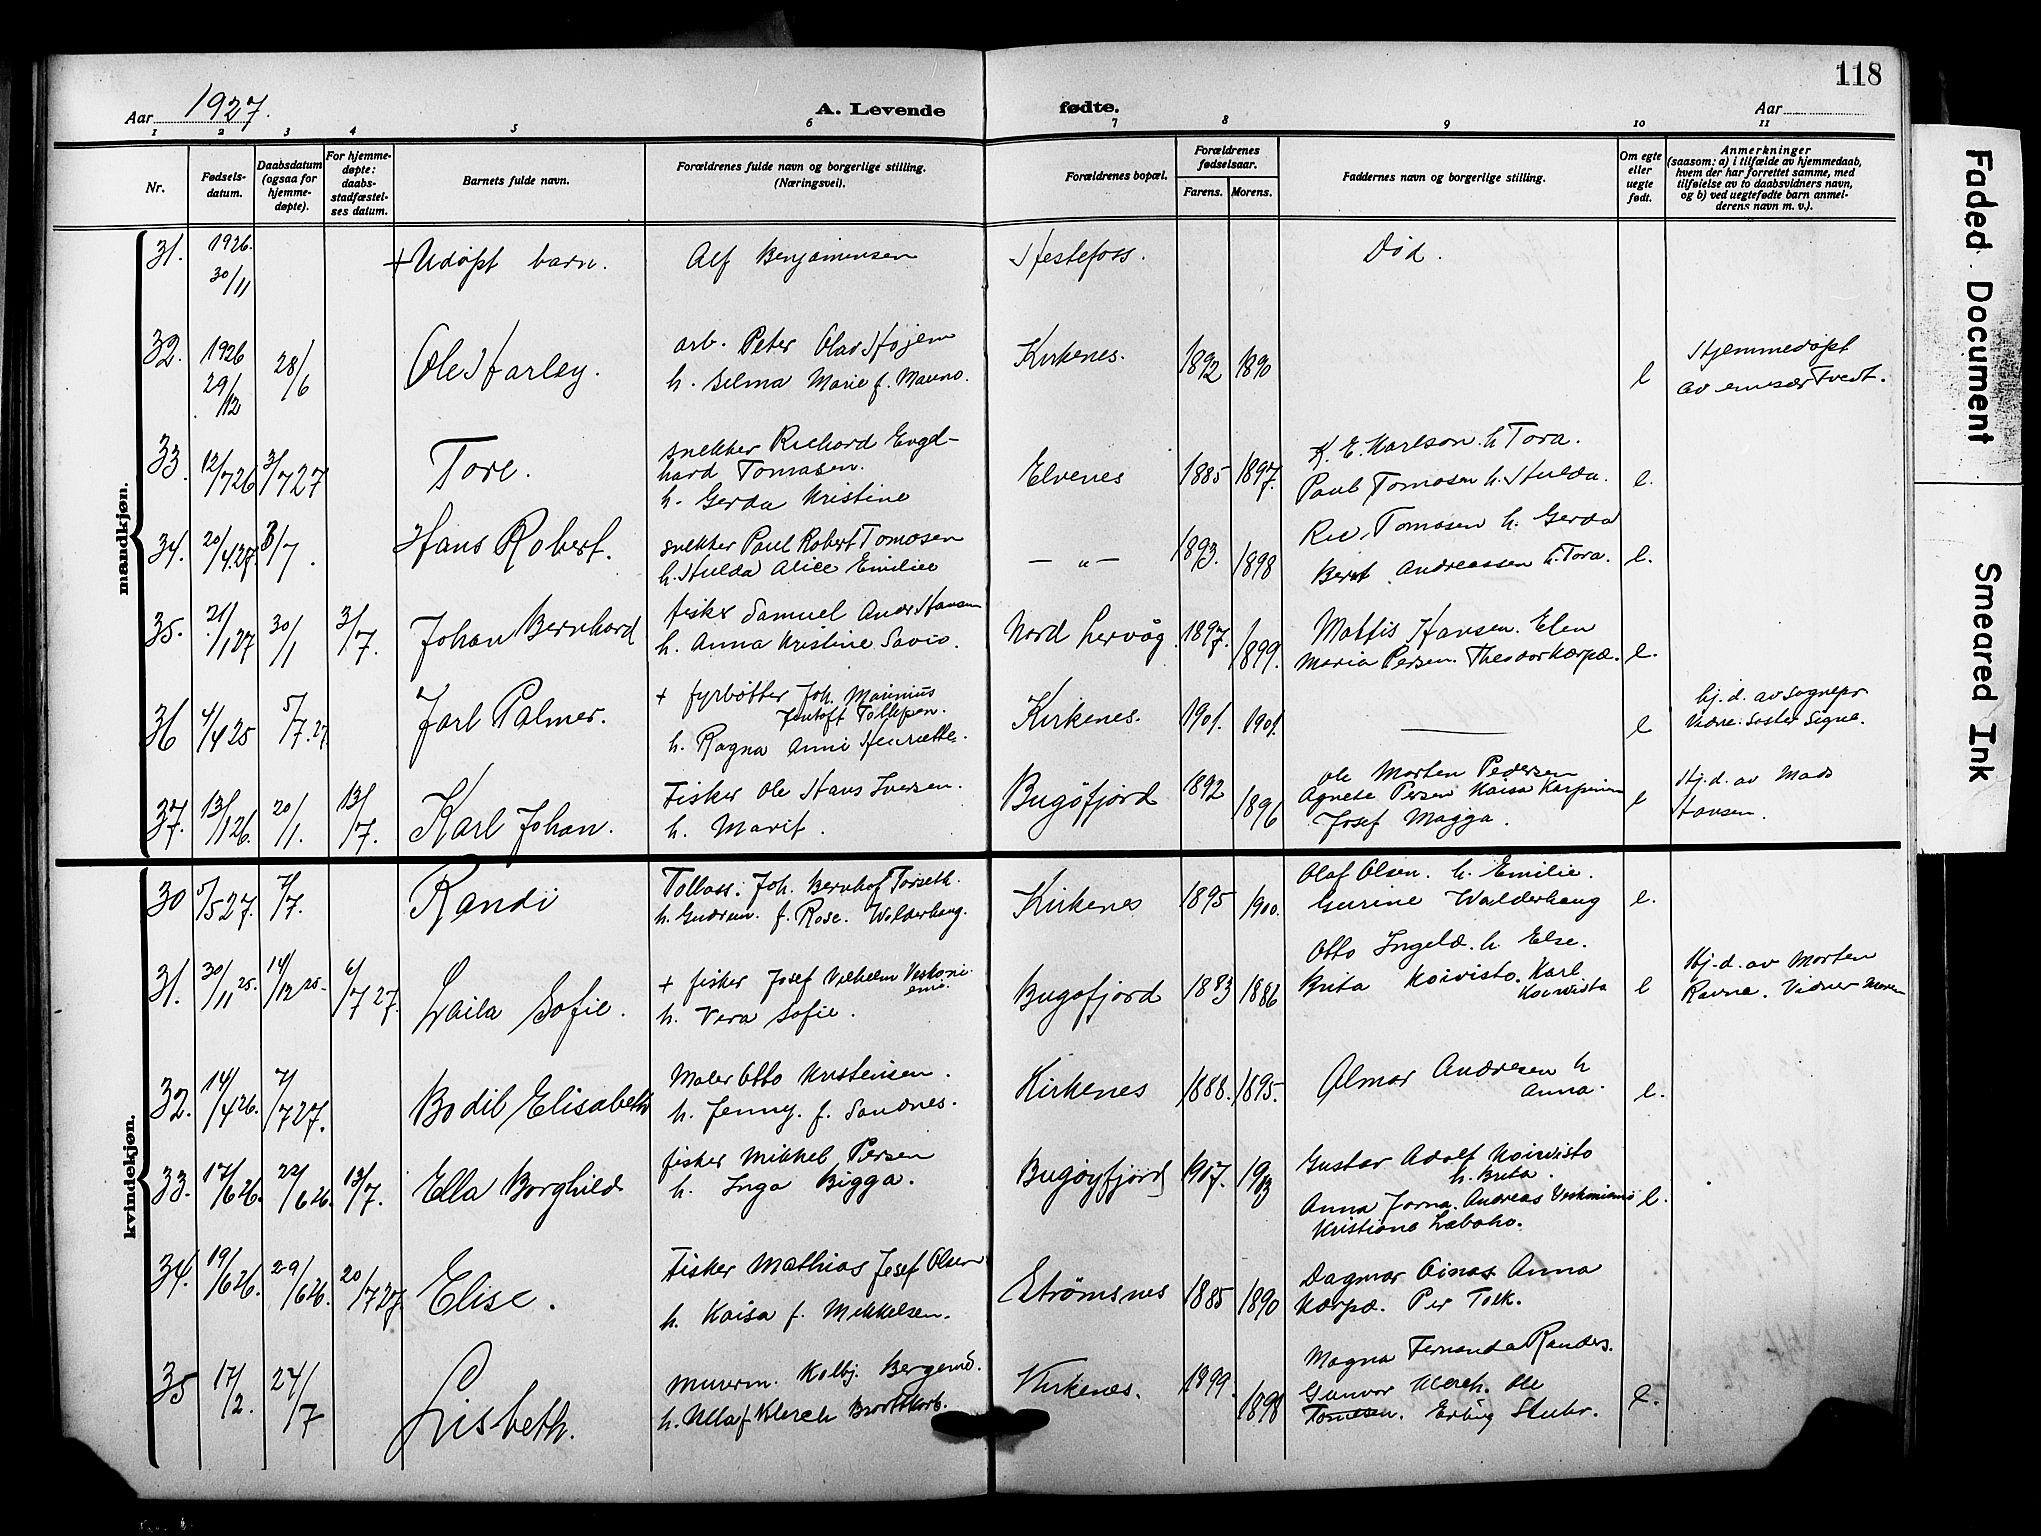 118
Aar 1927.
A. Levende fødte.
Aar
1 2 3 4 5 6 7 8 9 10 11
Nr.
Fødsels-
datum.
Daabsdatum
(ogsaa for
hjemme-
døpte).
For hjemme-
døpte:
daabs-
stadfæstel-
ses datum.
Barnets fulde navn.
Forældrenes fulde navn og borgerlige stilling.
(Næringsvei).
Forældrenes bopæl.
Forældrenes
fødselsaar.
Farens. Morens.
Faddernes navn og borgerlige stilling.
Om egte
eller
uegte
født.
Anmerkninger
(saasom: a) i tilfælde av hjemmedaab,
hvem der har forrettet samme, med
tilføielse av to daabsvidners navn,
og b) ved uegtefødte barn anmel-
derens navn m. v.).
mandkjøn.
31. 1926. 30/11 + Udøpt barn. Alf Benjaminsen Hestefoss. Død.
32. 1926 29/12 28/6 Ole Harley.
arb. Peter Olav Højem
h. Selma Marie f. Mauno.
Kirkenes. 1892 1890 e
Hjemmedøpt
av emisær Tvedt.
33. 12/7 26 3/7 27 Tore.
snekker Richard Engel-
hard Tomasen.
h. Gerda Kristine
Elvenes 1885 1897.
K. E. Karlson. h Tora.
Paul Tomasen h. Hulda. e.
34. 20/4.27. 3/7. Hans Robert.
snekker Paul Robert Tomasen
h. Hulda Alice Emilie
— „ — 1893. 1898
Ric. Tomasen h. Gerda
Bernt Andreassen h. Tora. e.
35. 21/1 27 30/1 3/7. Johan Bernhard
fisker Samuel Hansen
h. Anna Kristine Savio.
Nord Lervåg 1897. 1899.
Mattis Hansen. Elen
Maria Persen. Theodor Kærpæ. e.
36 4/4 25 5/7.27. Jarl Palmer.
+ fyrbøtter Joh. Marinius
Jentoft Tollefsen.
h. Ragna Anni Henriette.
Kirkenes. 1901. 1901. — e
hj. d. av sognepr
Vidne: søster Signe.
37. 13/1 26. 20/1. 13/7. Karl Johan.
Fisker Ole Hans Iversen.
h. Marit.
Bugøfjord 1892 1896
Ole Morten Pedersen
Agnete Persen Kaisa
Josef Magga. e
Hj. d. av Mads
Hansen.
kvindekjøn.
30 5/5 27. 7/7. Randi
Tollass. Joh. Bernhof Torseth.
h. Gudrun. f. Rose. Walderhaug.
Kirkenes 1895 1900.
Olaf Olsen. h. Emilie.
Gurine Walderhaug e.
31. 30/11 25. 14/12 25 6/7 27. Laila Sofie.
+ fisker Josef Vilhelm
h. Vera Sofie.
Bugøfjord 1883 1886
Otto Ingeld. h. Else.
Brita Koivisto. Karl
Koivisto e
Hj. d. av Morten
Ravna. Vidner Moren
32. 14/4 26. 7/7 27. Bodil Elisabeth
Maler Otto Kristensen.
h. Jenny. f. Sandnes.
Kirkenes 1888. 1895.
Almar Andresen h
Anna. e.
33. 17/6 26. 22/6 26. 13/7. Ella Borghild
fisker Mikkel Persen
h. Inga Bigga.
Bugøyfjord 1907. 1903
Gustav Adolf Koivisto
h. Brita.
Anna Jorna. Andreas
Kristiana Labaho. e.
34. 19/6 26. 29/6 26. 20/7 27 Elise.
Fisker Mathias Josef Olsen
h. Kaisa f. Mikkelsen.
Strømsnes 1885 1890
Dagmar Oinas Anna
Kærpæ. Per Tolk.
35 17/2. 24/7 Lisbeth.
murerm. Kolbj.
h. Ulla f. Klerck
Kirkenes. 1899. 1898
Magna Fernanda Randers.
Gunvor Klerck. Ole
Tomesen. Erling Stuhr. e.
Faded Document
Smeared Ink